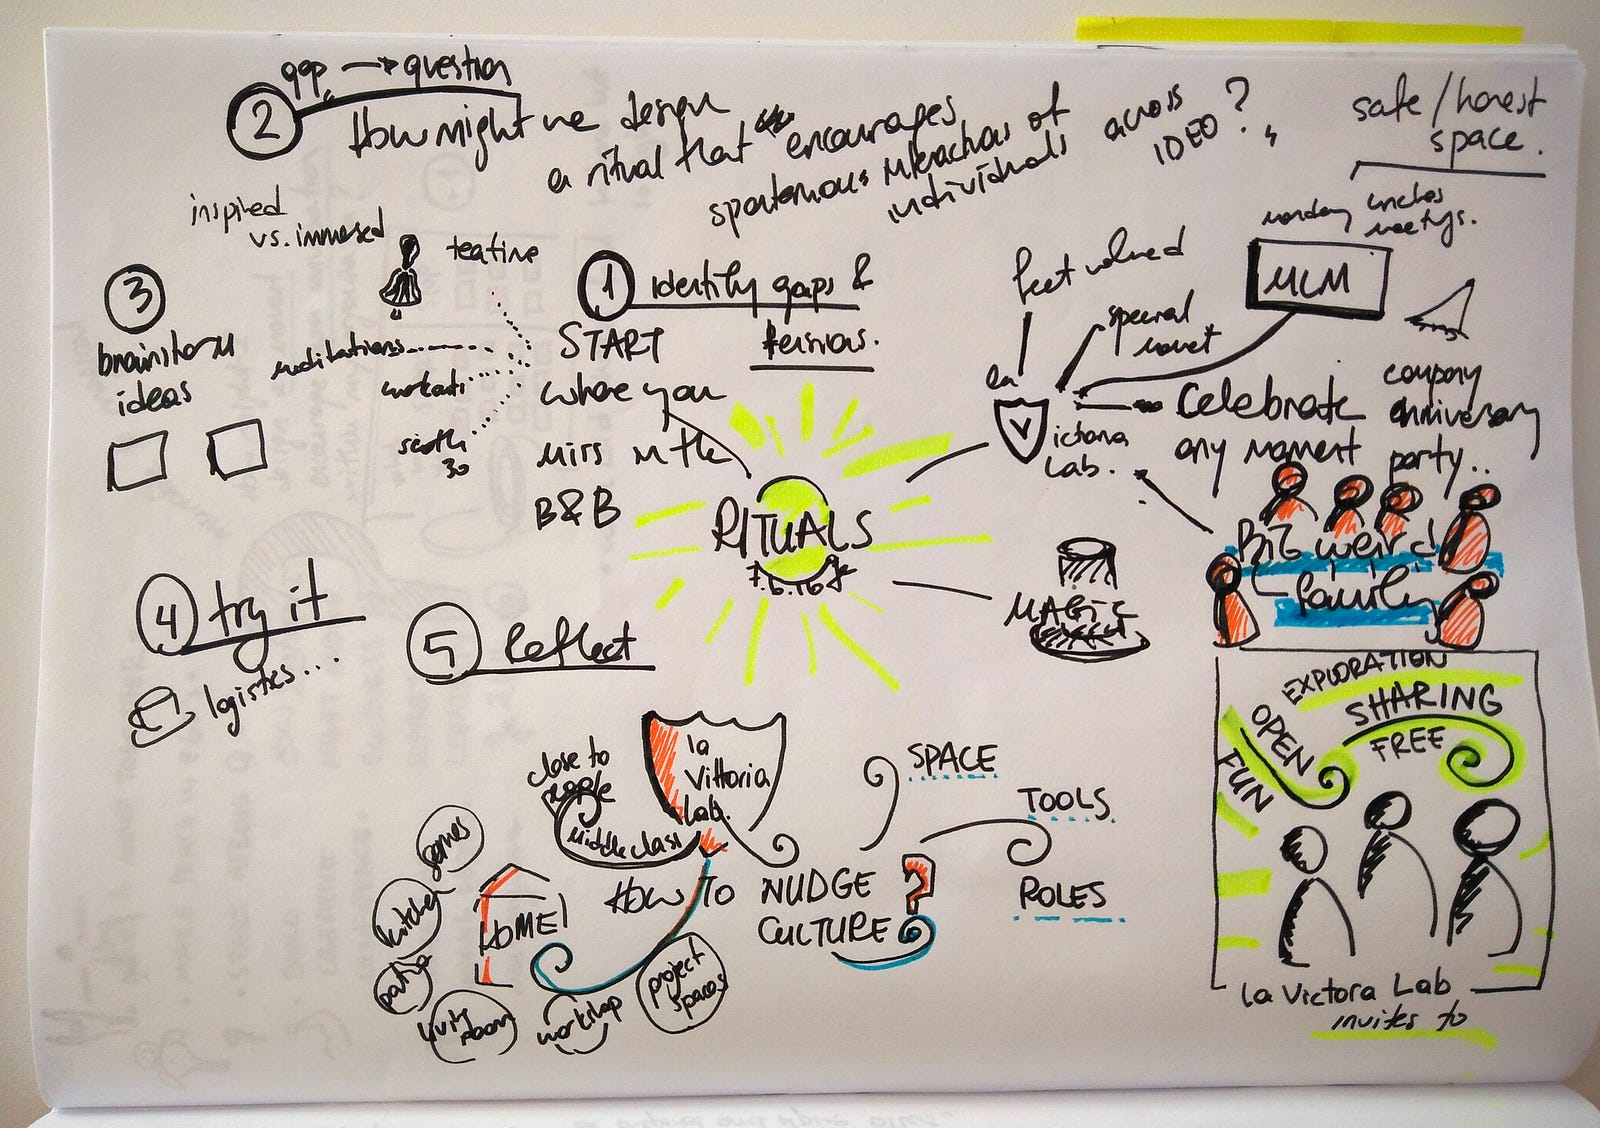 gap → question
2 How might we design
a ritual that encourages
spontaneous interactions of
individuals across
IDEO?
safe/honest
space.
inspired
vs. immersed
teatime
3
brainstorm
ideas
1 identify gaps &
tensions.
START
where you
miss in the
B&B
meditations
feel valued
special
monday lunches
meetgs.
MLM
la
Victoria
Lab.
Celebrate
any moment
company
anniversary
party..
BIG weird
family
RITUALS
7.6.16
MAGIC
4 try it
logistics...
5 Reflect
EXPLORATION
SHARING
OPEN
FREE
FUN
la Victora Lab
invites to
close to
people
Middle class
la
Vittoria
Lab.
SPACE
TOOLS
ROLES
HOW TO NUDGE
CULTURE?
HOME!
games
kitchen
patio
living
room
workshop
project
spaces